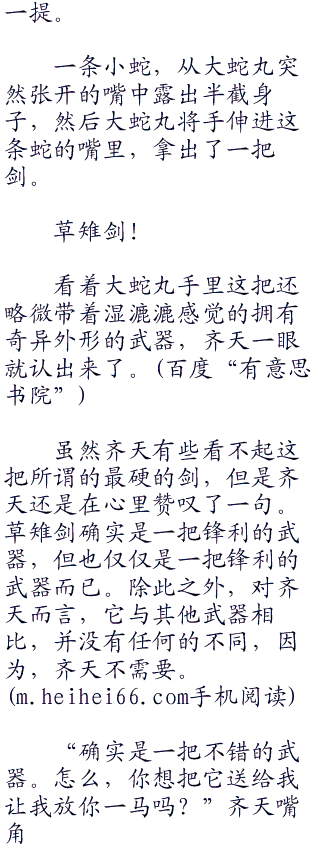 一提。
一条小蛇，从大蛇丸突
然张开的嘴中露出半截身
子，然后大蛇丸将手伸进这
条蛇的嘴里，拿出了一把
剑。
草雉剑！
看着大蛇丸手里这把还
略微带着湿漉漉感觉的拥有
奇异外形的武器，齐天一眼
就认出来了。(百度“有意思
书院”)
虽然齐天有些看不起这
把所谓的最硬的剑，但是齐
天还是在心里赞叹了一句。
草雉剑确实是一把锋利的武
器，但也仅仅是一把锋利的
武器而已。除此之外，对齐
天而言，它与其他武器相
比，并没有任何的不同，因
为，齐天不需要。
(m.heihei66.com手机阅读)
“确实是一把不错的武
器。怎么，你想把它送给我
让我放你一马吗？”齐天嘴
角